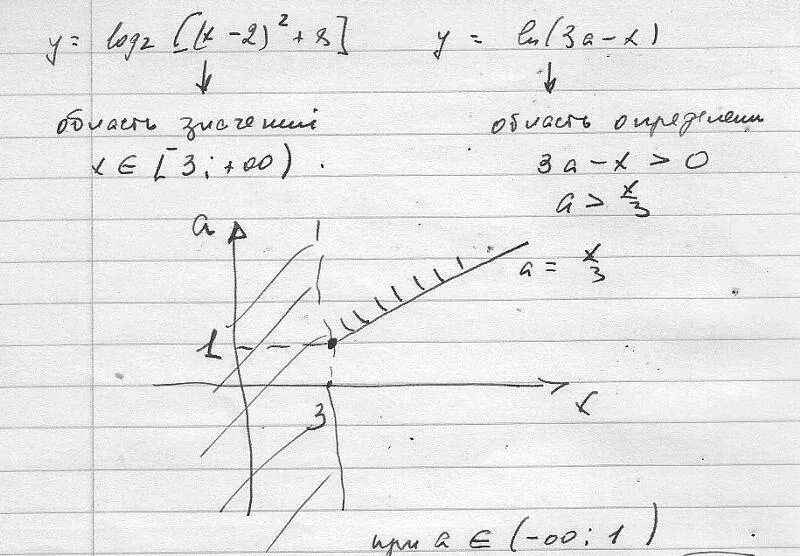 y = log2 [(x-2)² + 8]
y = ln(3a-x)
↓
↓
область значений
x ∈ [3; +∞).
область определени
3a - x > 0
a > x/3
a
a = x/3
1
3
x
при a ∈ (-∞; 1)